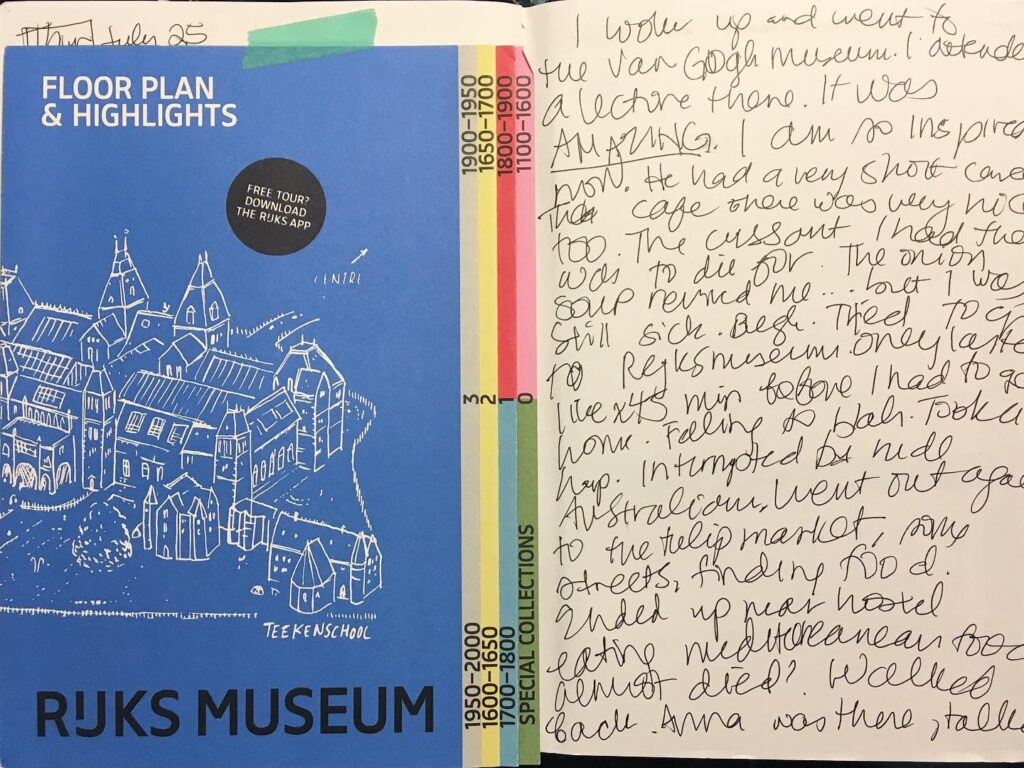 Third July 25
FLOOR PLAN
& HIGHLIGHTS
FREE TOUR?
DOWNLOAD
THE RIJKS APP
CENTRE
TEEKENSCHOOL
RIJKS MUSEUM
1900–1950
1650–1700
1800–1900
1100–1600
3
2
1
0
1950–2000
1600–1650
1700–1800
SPECIAL COLLECTIONS
I woke up and went to
the Van Gogh museum. I attende
a lecture there. It was
AMAZING. I am so inspired
now. He had a very short caree
cafe there was very nice
too. The cussant I had the
was to die for. The onion
soup revived me... but I was
still sick. Blegh. Tried to go
to Rejksmuseum. only laste
like 45 min before I had to go
home. Falling so blah. Took a
nap. Interrupted by rude
Australian, went out again
to the tulip market, some
streets, finding food.
Ended up near hostel
eating meditoreanean food
almost died? Walked
back. Anna was there, talke